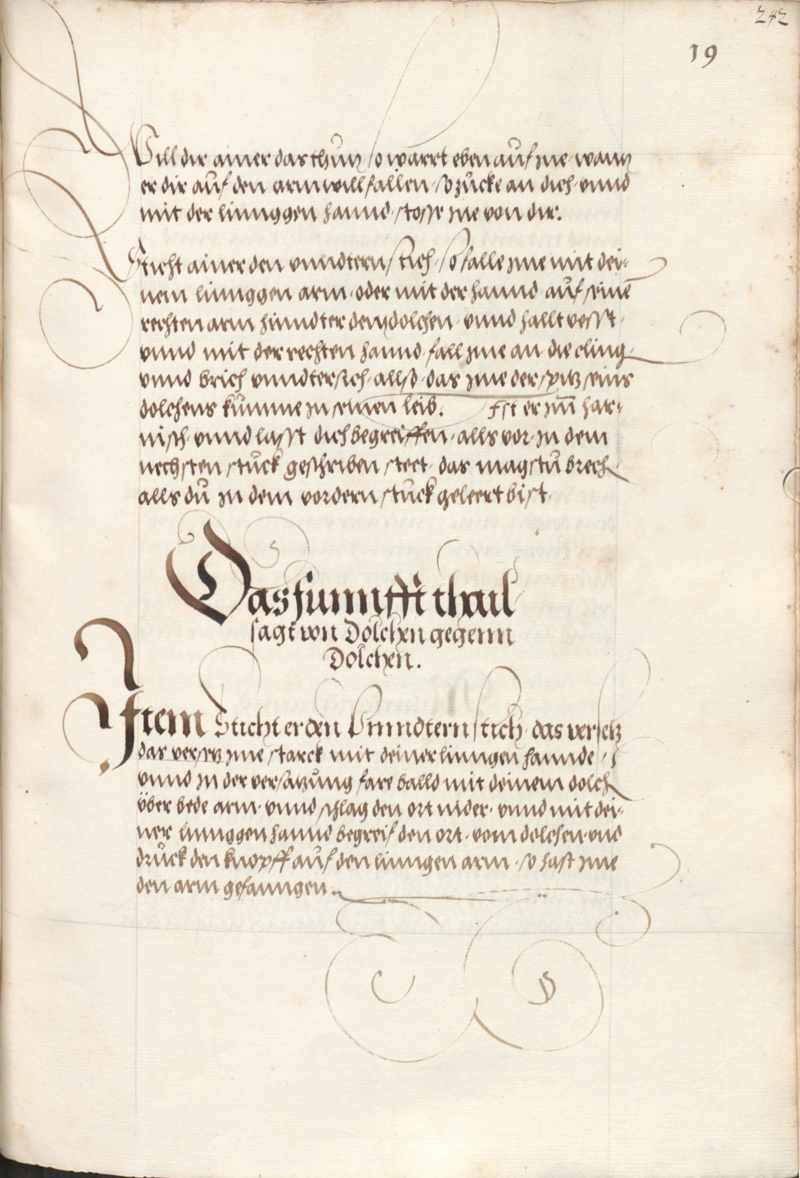 242
19
Will dir ainer das thun, so warrt eben auf jne wann
er dir auf den arm will fallen, so zücke an dich vnnd
mit der linnggen hannd stosse jne von dir.
Sticht ainer den vnndtern stich, so falle jme mit dei-
nem linnggen arm, oder mit der hannd auf seinē
rechten arm hinndter dem dolchen, vnnd hallt vesst,
vnnd mit der rechten hannd fall jme an die cling
vnnd brich vnndtersich, allso das jme der spitz seins
dolchens kumme jn seinen leib. Jst er jm har-
nisch vnnd lasst dich begreiffen, alls vor jn dem
nechsten stuck geschriben steet, das magstu brech
alls du jn dem vordern stuck geleert bist
Das funnfft thail
sagt von Dolchen gegenn
Dolchen.
Jtem Sticht er den Vnndtern stich, das versetz
das versetz jme starck mit deiner linngen hannde,
vnnd jn der versatzung fare balld mit deinem dolch
über bede arm, vnnd schlag den ort nider, vnnd mit dei-
ner linnggen hannd begreif den ort, vom dolchen vnd
drück den knopff auf den linngen arm, so hast jme
den arm gefanngen.